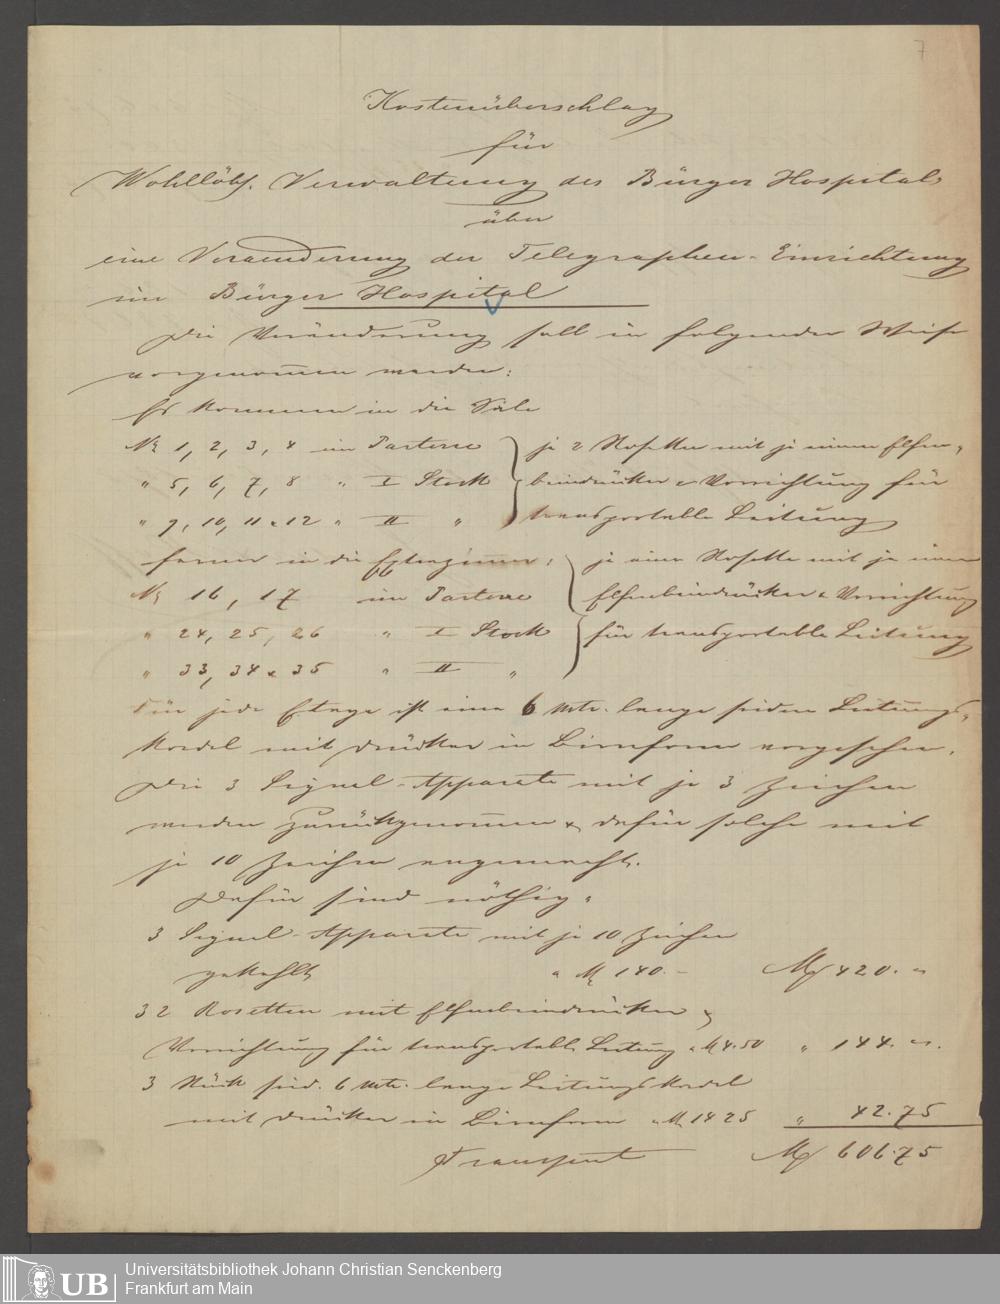 7
Kostenüberschlag
für
Wohllöbl. Verwaltung des Bürger Hospitals
über
eine Veraenderung der Telegraphen-Einrichtung
im Bürger Hospital
Die Veränderung soll in folgender Weise
vorgenommen werden:
Es kommen in die Säle
No 1, 2, 3, 4 im Parterre } je 2 Rosetten mit je einem Elfen-
" 5, 6, 7, 8 " I Stock } beindrücker & Vorrichtung für
" 9, 10, 11 & 12 " II " } transportable Leitung
ferner in die Extrazimmer: } je eine Rosette mit je einem
No 16, 17 im Parterre } Elfenbeindrücker & Vorrichtung
" 24, 25, 26 " I Stock } für transportable Leitung
" 33, 34 & 35 " II "
Für jede Etage ist eine 6 Mtr. lange seidene Leitungs-
kordel mit Drücker in Birnform vorgesehen.
Die 3 Signal-Apparate mit je 3 Zeichen
werden zurückgenommen & dafür solche mit
je 10 Zeichen angemacht.
Dafür sind nöthig:
3 Signal-Apparate mit je 10 Zeichen
gekehlt à M 140.- M 420. "
32 Rosetten mit Elfenbeindrücker &
Vorrichtung für transportable Leitung à M 4.50 " 144. "
3 Stück seid. 6 Mtr. lange Leitungskordel
mit Drücker in Birnform à M 14 25 " 42.75
Transport M 606.75
UB Universitätsbibliothek Johann Christian Senckenberg
Frankfurt am Main